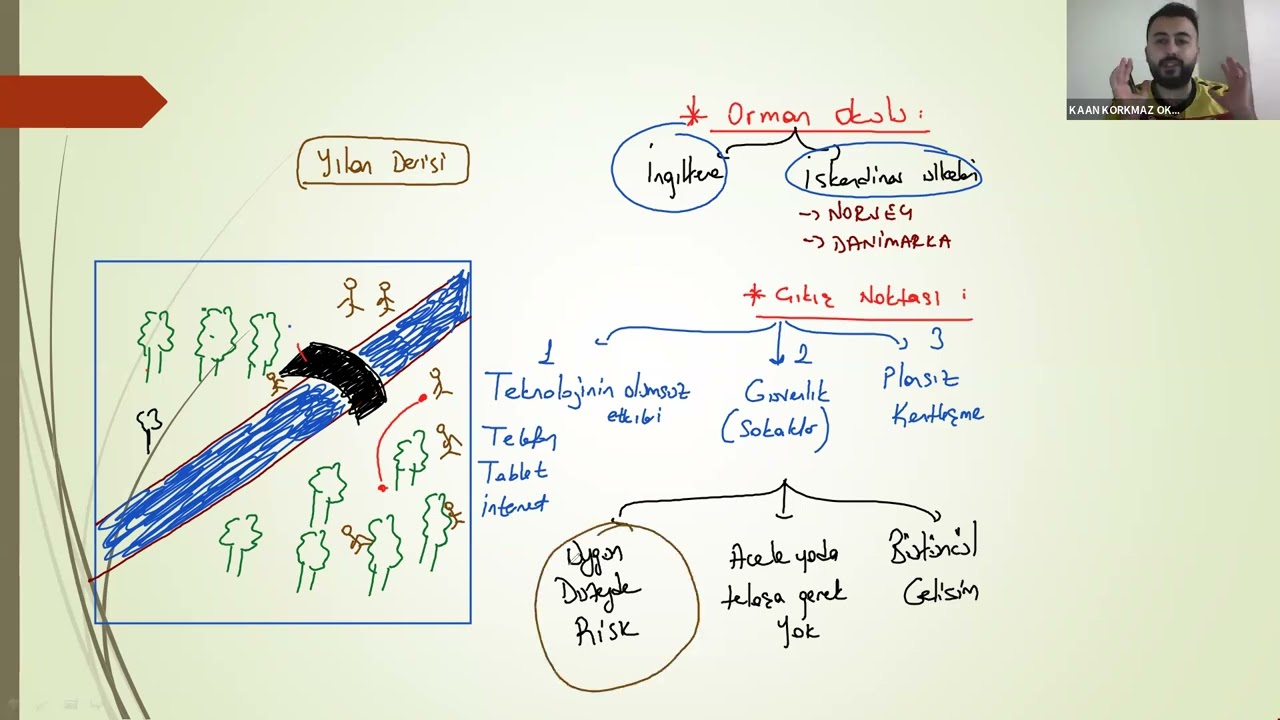 KAAN KORKMAZ OK...
* Orman Okulu :
Yılan Derisi
İngiltere
İskandinav ülkeleri
-> NORVEÇ
-> DANİMARKA
* Çıkış Noktası :
1
2
3
Teknolojinin olumsuz
etkileri
Telefon
Tablet
internet
Güvenlik
(Sokaklar)
Plansız
Kentleşme
Uygun
Düzeyde
Risk
Acele yada
telaşa gerek
Yok
Bütüncül
Gelişim